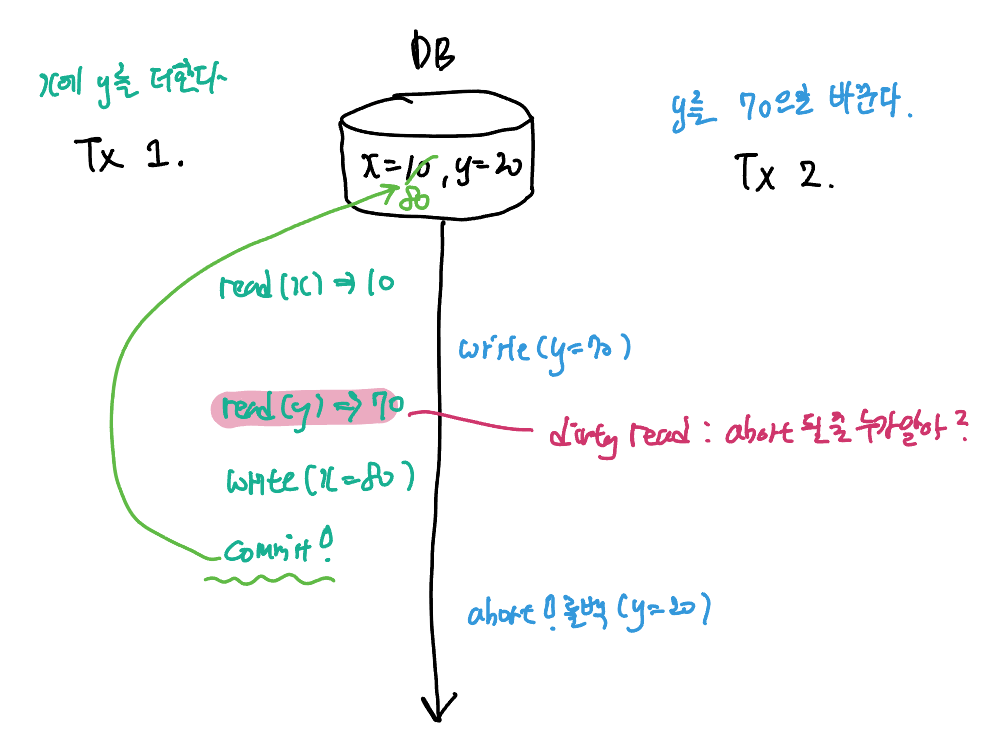 DB
x에 y를 더한다~
Tx 1.
y를 70으로 바꾼다.
Tx 2.
x=10, y=20
80
read(x) ⇒ 10
write(y=70)
read(y) ⇒ 70
dirty read : abort 될줄 누가알아?
write(x=80)
commit!
abort! 롤백(y=20)